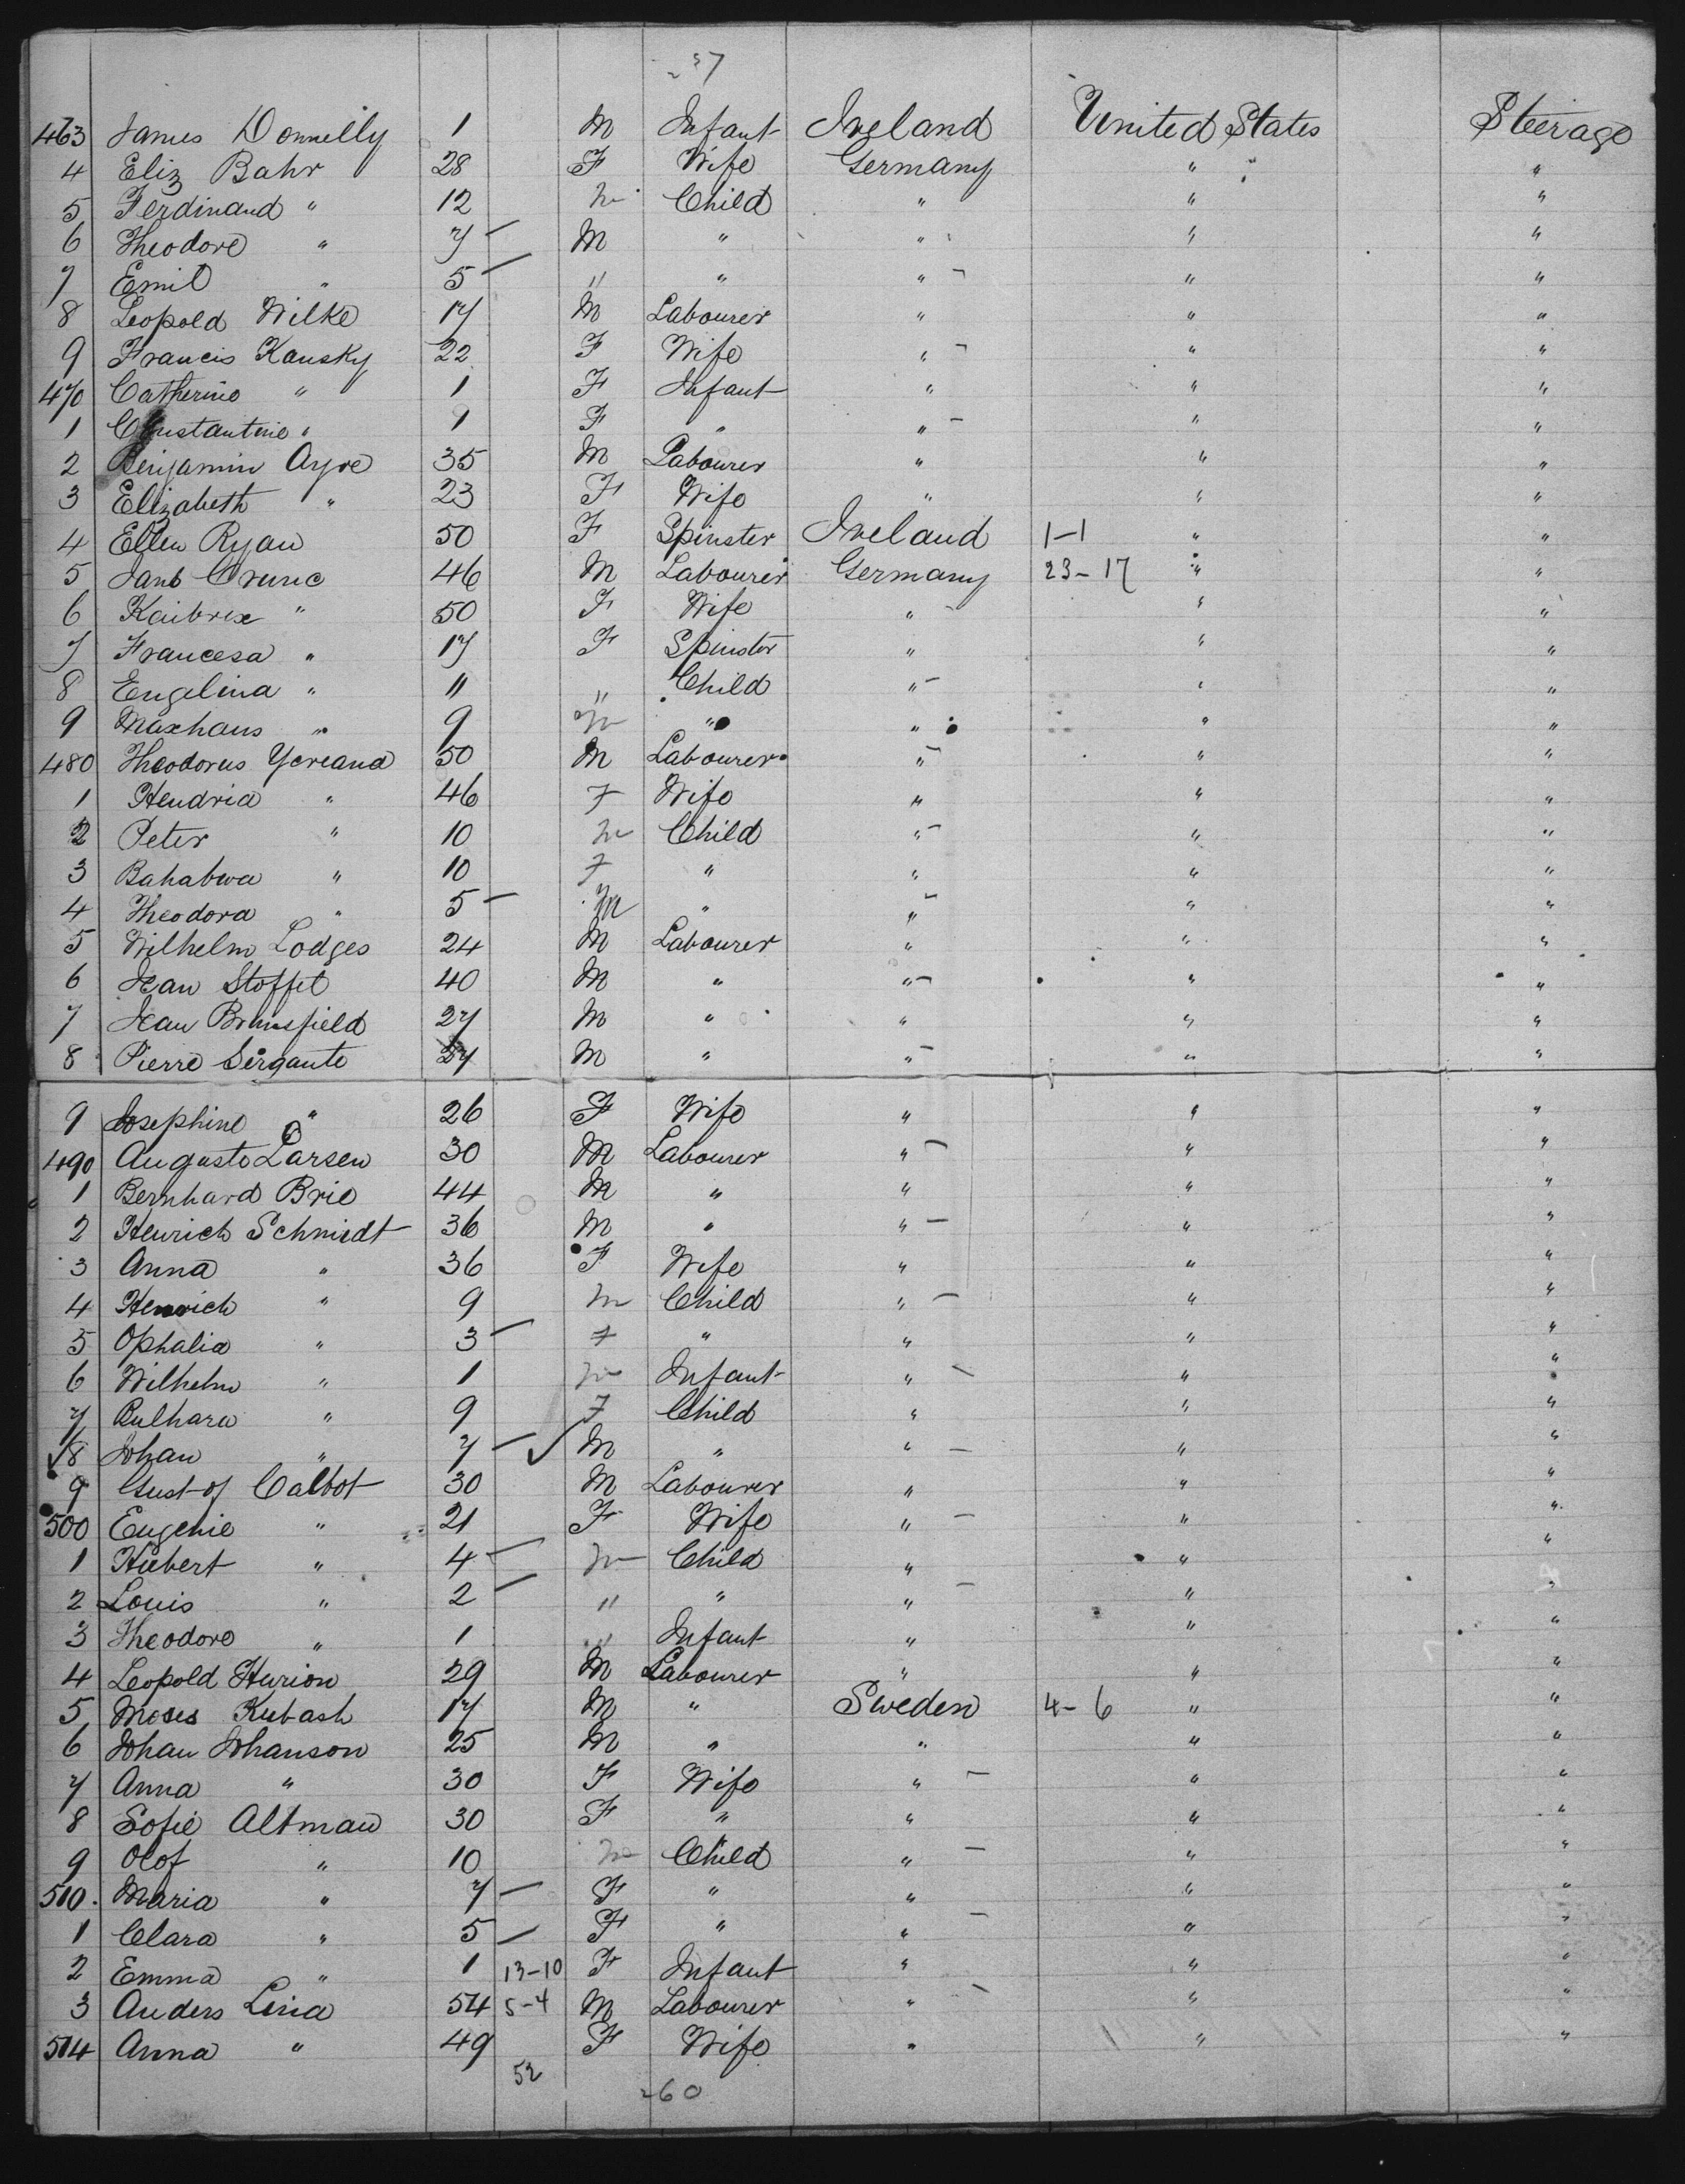 257
463 James Donnelly 1 M Infant Ireland United States Steerage
4 Eliz Bahr 28 F Wife Germany " "
5 Ferdinand " 12 m Child " " "
6 Theodore " 7 – M " " " "
7 Emil " 5 – " " " – " "
8 Leopold Wilke 17 M Labourer " " "
9 Francis Kansky 22 F Wife " – " "
470 Catherine " 1 F Infant " " "
1 Constantine " 1 F " " – " "
2 Benjamin Ayre 35 M Labourer " " "
3 Elizabeth " 23 F Wife " " "
4 Ellen Ryan 50 F Spinster Ireland 1-1 " "
5 Janb Crunc 46 M Labourer Germany 23-17 " "
6 Kaibrix " 50 F Wife " – " "
7 Francesa " 17 F Spinster " " "
8 Engelina " 11 " Child " – " "
9 Maxhaus " 9 m " " " "
480 Theodorus Yereand 50 M Labourer " – " "
1 Hendria " 46 F Wife " " "
2 Peter " 10 m Child " – " "
3 Bahabwa " 10 F " " " "
4 Theodora " 5 – M " " – " "
5 Wilhelm Lodges 24 M Labourer " " "
6 Jean Stoffel 40 M " " – " "
7 Jean Brunsfield 27 M " " " "
8 Pierre Sergante 27 M " " – " "
9 Josephine " 26 F Wife " " "
490 Auguste Larsen 30 M Labourer " – " "
1 Bernhard Brie 44 M " " " "
2 Henrich Schmidt 36 M " " – " "
3 Anna " 36 F Wife " " "
4 Henrich " 9 m Child " – " "
5 Ophalia " 3 – F " " " "
6 Wilhelm " 1 m Infant " – " "
7 Bulhara " 9 F Child " " "
8 Johan " 7 – M " " – " "
9 Gustof Calbot 30 M Labourer " " "
500 Eugenie " 21 F Wife " – " "
1 Hubert " 4 – m Child " " "
2 Louis " 2 – " " " – " "
3 Theodore " 1 " Infant " " "
4 Leopold Hurion 29 M Labourer " " "
5 Moses Kubash 17 M " Sweden 4-6 " "
6 Johan Johanson 25 M " " " "
7 Anna " 30 F Wife " – " "
8 Sofie Altman 30 F " " " "
9 Olof " 10 m Child " – " "
510 Maria " 7 – F " " " "
1 Clara " 5 – F " " – " "
2 Emma " 1 13-10 F Infant " " "
3 Anders Liria 54 5-4 M Labourer " – " "
514 Anna " 49 F Wife " " "
52
260